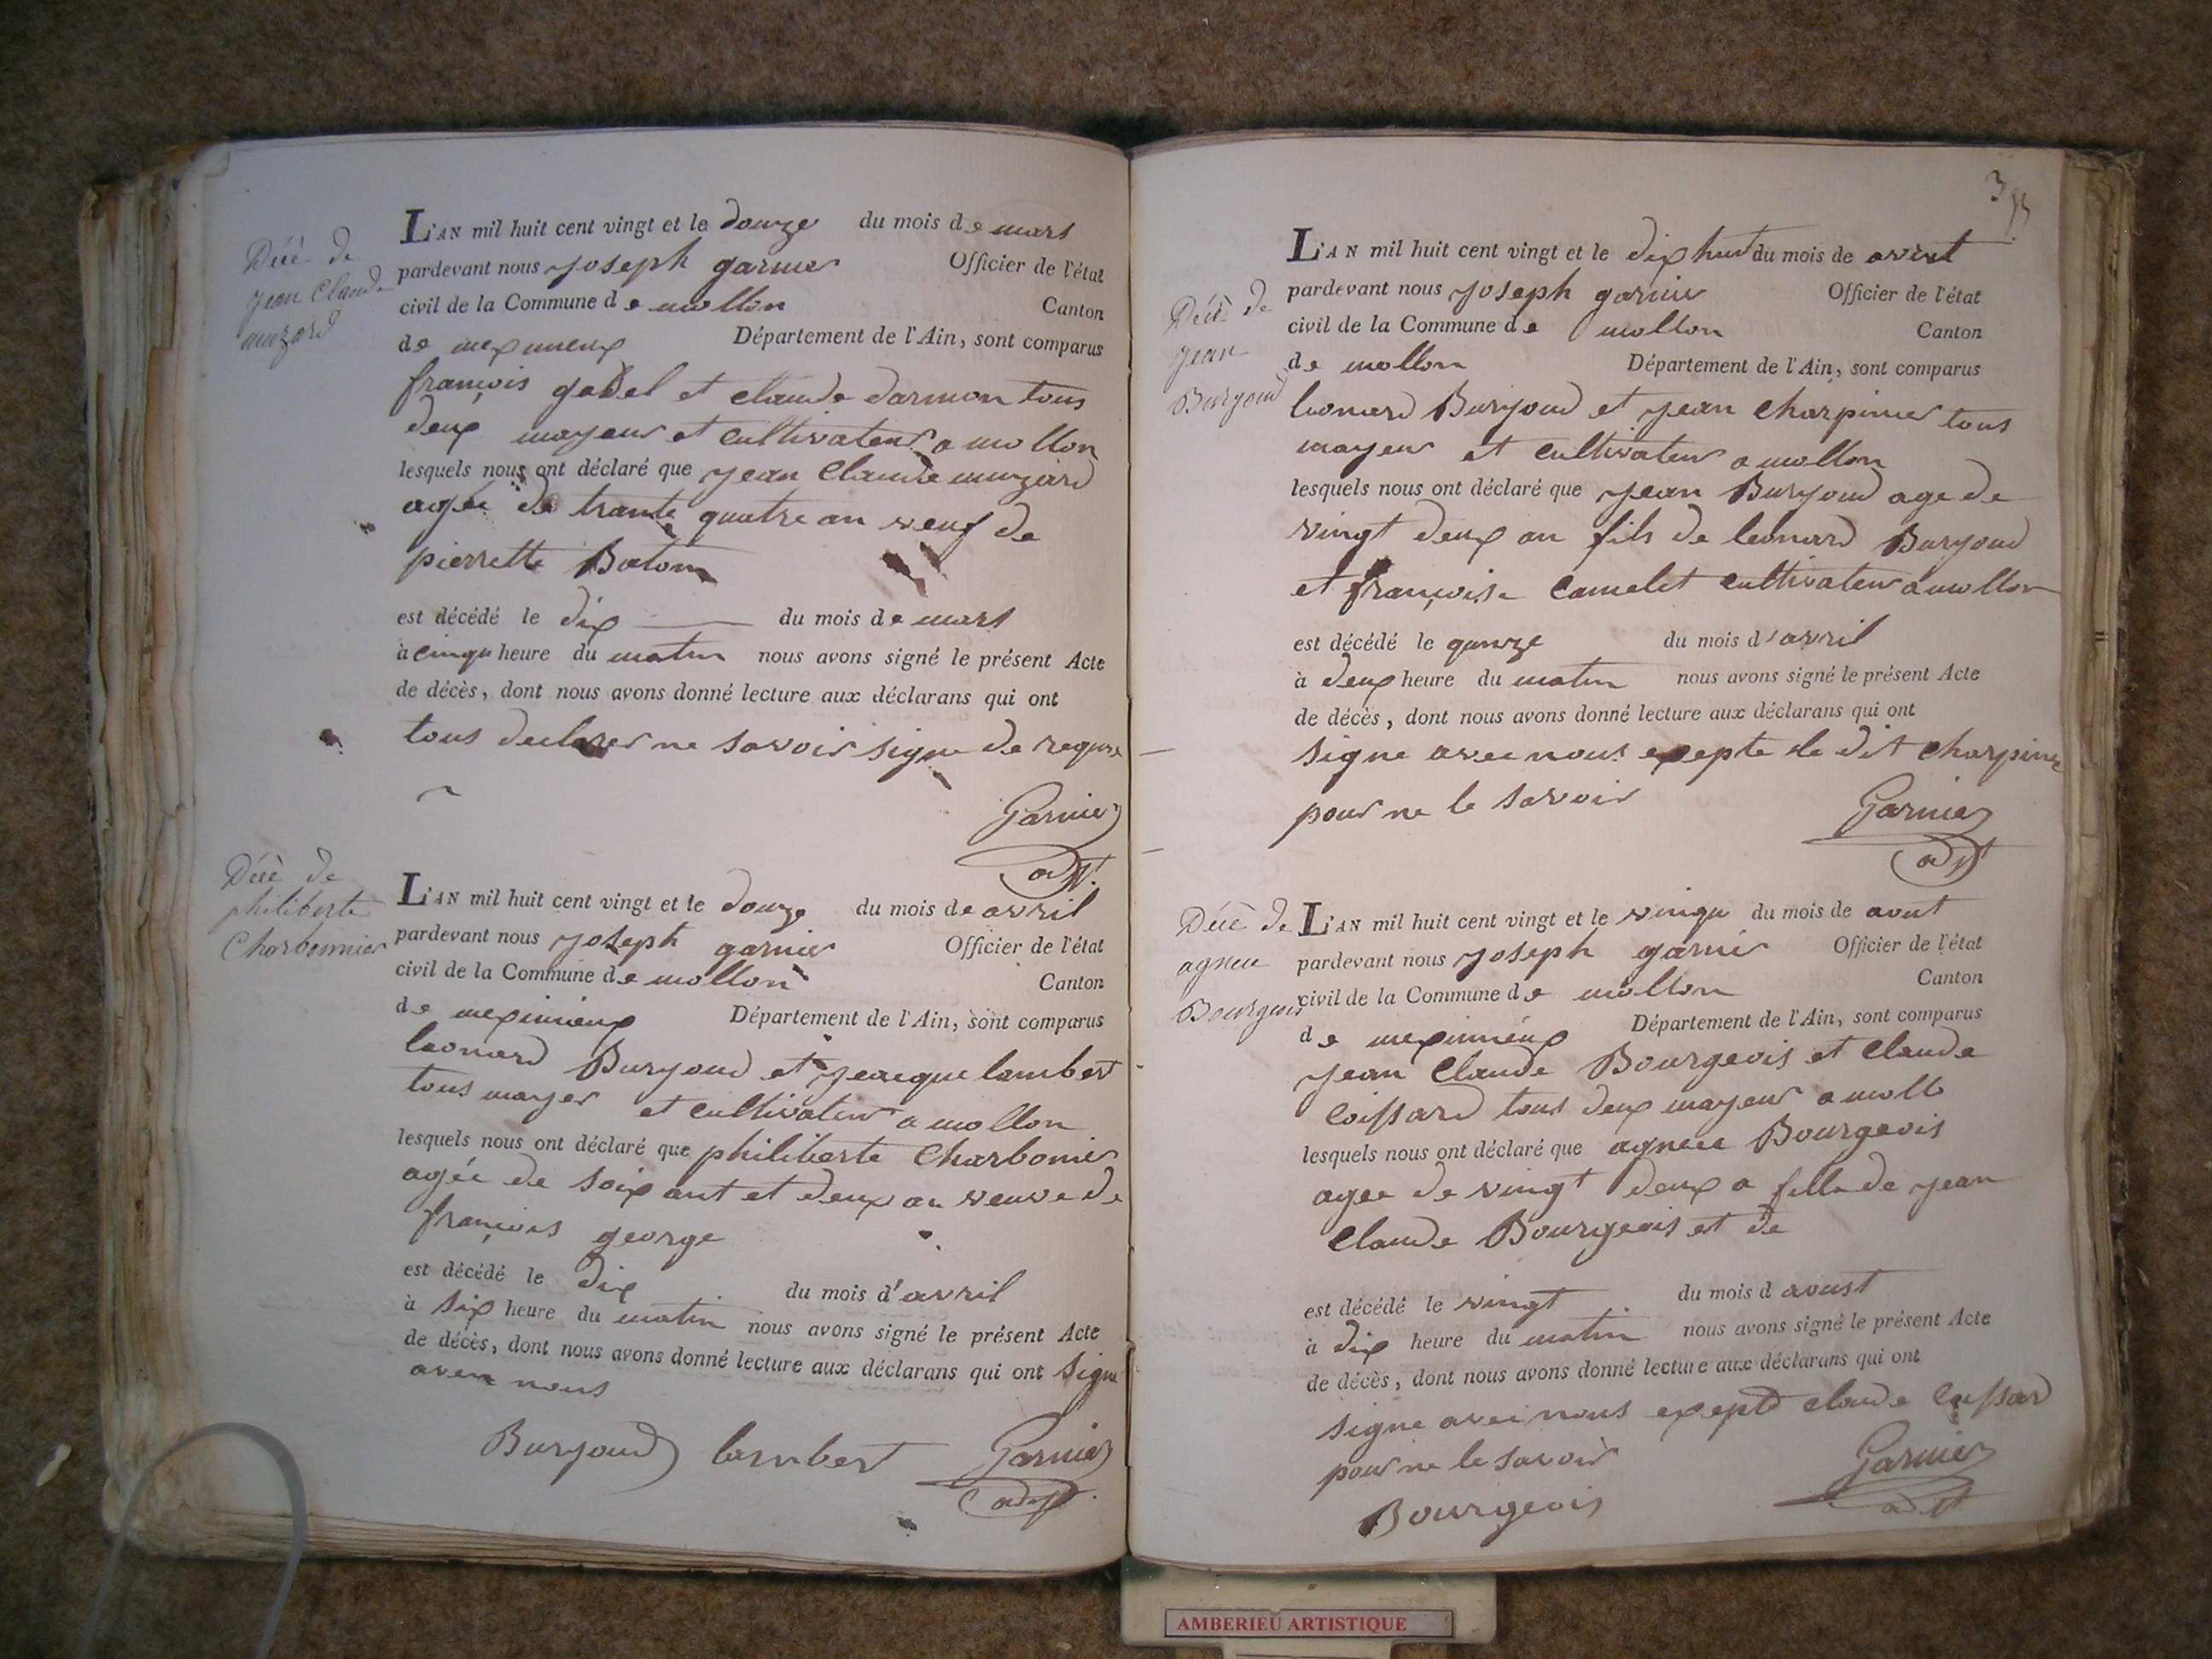 Décè de
jean Claude
muzard
L'AN mil huit cent vingt et le douze du mois de mars
pardevant nous joseph garnier Officier de l'état
civil de la Commune de mollon Canton
de meximieux Département de l'Ain, sont comparus
françois godel et claude darmon tous
deux mayeur et cultivateur a mollon
lesquels nous ont déclaré que jean Claude muzard
agée de trante quatre an veuf de
pierrette Baton
est décédé le dix du mois de mars
à cinqu heure du matin nous avons signé le présent Acte
de décès, dont nous avons donné lecture aux déclarans qui ont
tous declarer ne savoir signe de requis
Garnier
adjt.
Décè de
philiberte
Charbonnier
L'AN mil huit cent vingt et le douze du mois de avril
pardevant nous joseph garnier Officier de l'état
civil de la Commune de mollon Canton
de meximieux Département de l'Ain, sont comparus
leonard Buryoud et jeacque lambert
tous mayer et cultivateur a mollon
lesquels nous ont déclaré que philiberte Charbonier
agée de soixant et deux an veuve de
françois george
est décédé le dix du mois d'avril
à six heure du matin nous avons signé le présent Acte
de décès, dont nous avons donné lecture aux déclarans qui ont signe
avec nous
Buryoud lambert Garnier
adjt.
Décè de
jean
Buryoud
L'AN mil huit cent vingt et le dix huit du mois de
pardevant nous joseph garnier Officier de l'état
civil de la Commune de mollon Canton
de mollon Département de l'Ain, sont comparus
leonard Buryoud et jean charpinier tous
mayeur et cultivateur a mollon
lesquels nous ont déclaré que jean Buryoud age de
vingt deux an fils de leonard Buryoud
et françoise Camelet cultivateur a mollon
est décédé le quinze du mois d'avril
à deux heure du matin nous avons signé le présent Acte
de décès, dont nous avons donné lecture aux déclarans qui ont
signe avec nous exepte le dit charpinie
pour ne le savoir
Garnier
adjt
Décè de
agnece
Bourgeois
L'AN mil huit cent vingt et le vingu du mois de aout
pardevant nous joseph garnie Officier de l'état
civil de la Commune de mollon Canton
de meximieux Département de l'Ain, sont comparus
jean Claude Bourgeois et Claude
Coissard tous deux mayeur a moll
lesquels nous ont déclaré que agnece Bourgeois
agee de vingt deux a fille de jean
Claude Bourgeois et de
est décédé le vingt du mois d aoust
à dix heure du matin nous avons signé le présent Acte
de décès, dont nous avons donné lecture aux déclarans qui ont
signe avec nous exepté claude
pour ne le savoir
Garnier
adjt
Bourgeois
AMBERIEU ARTISTIQUE